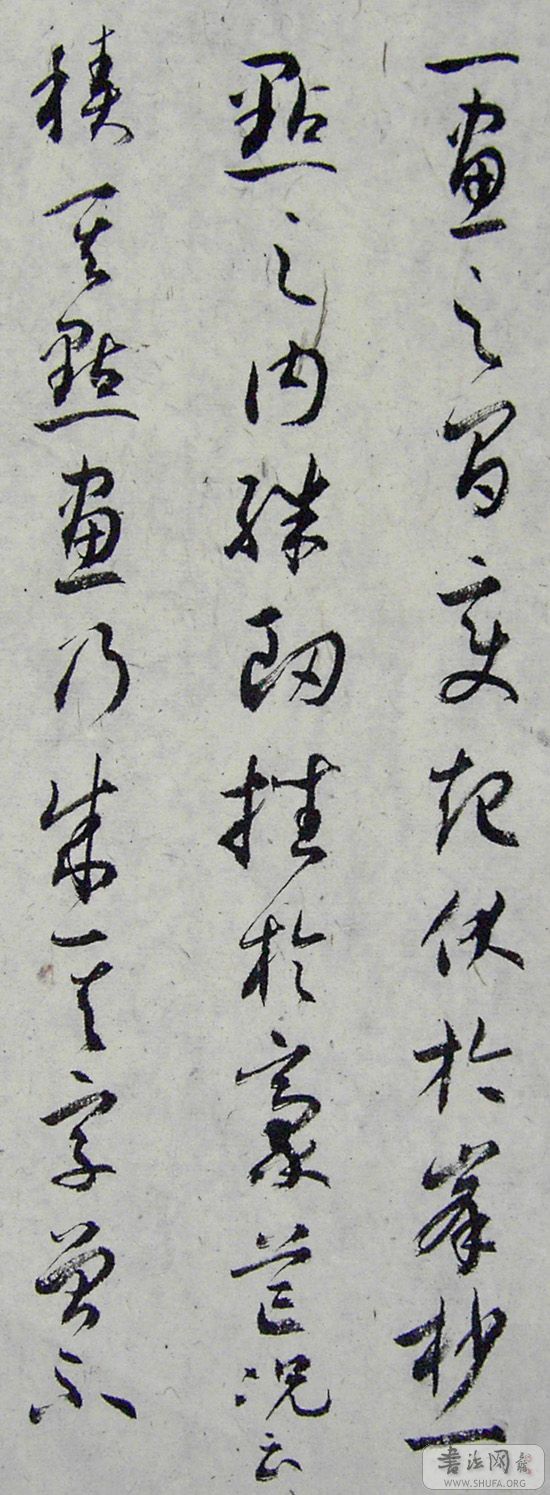 一畫之間變起伏於峯杪一
點之内殊衂挫於豪芒況云
積其點畫乃成其字曾不
書法网
WWW.SHUFA.ORG